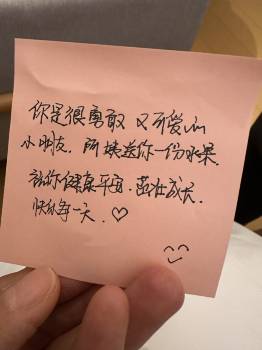 你是很勇敢 又可爱的
小朋友. 所以送你一份水果.
祝你健康平安. 茁壮成长.
快乐每一天. ♡